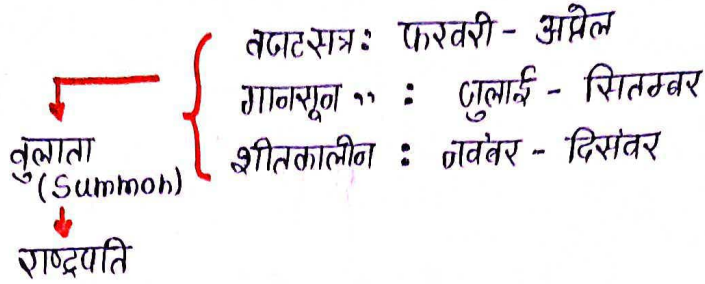 बजटसत्र : फरवरी - अप्रैल
मानसून " : जुलाई - सितम्बर
शीतकालीन : नवंबर - दिसंबर
बुलाता
(Summon)
राष्ट्रपति